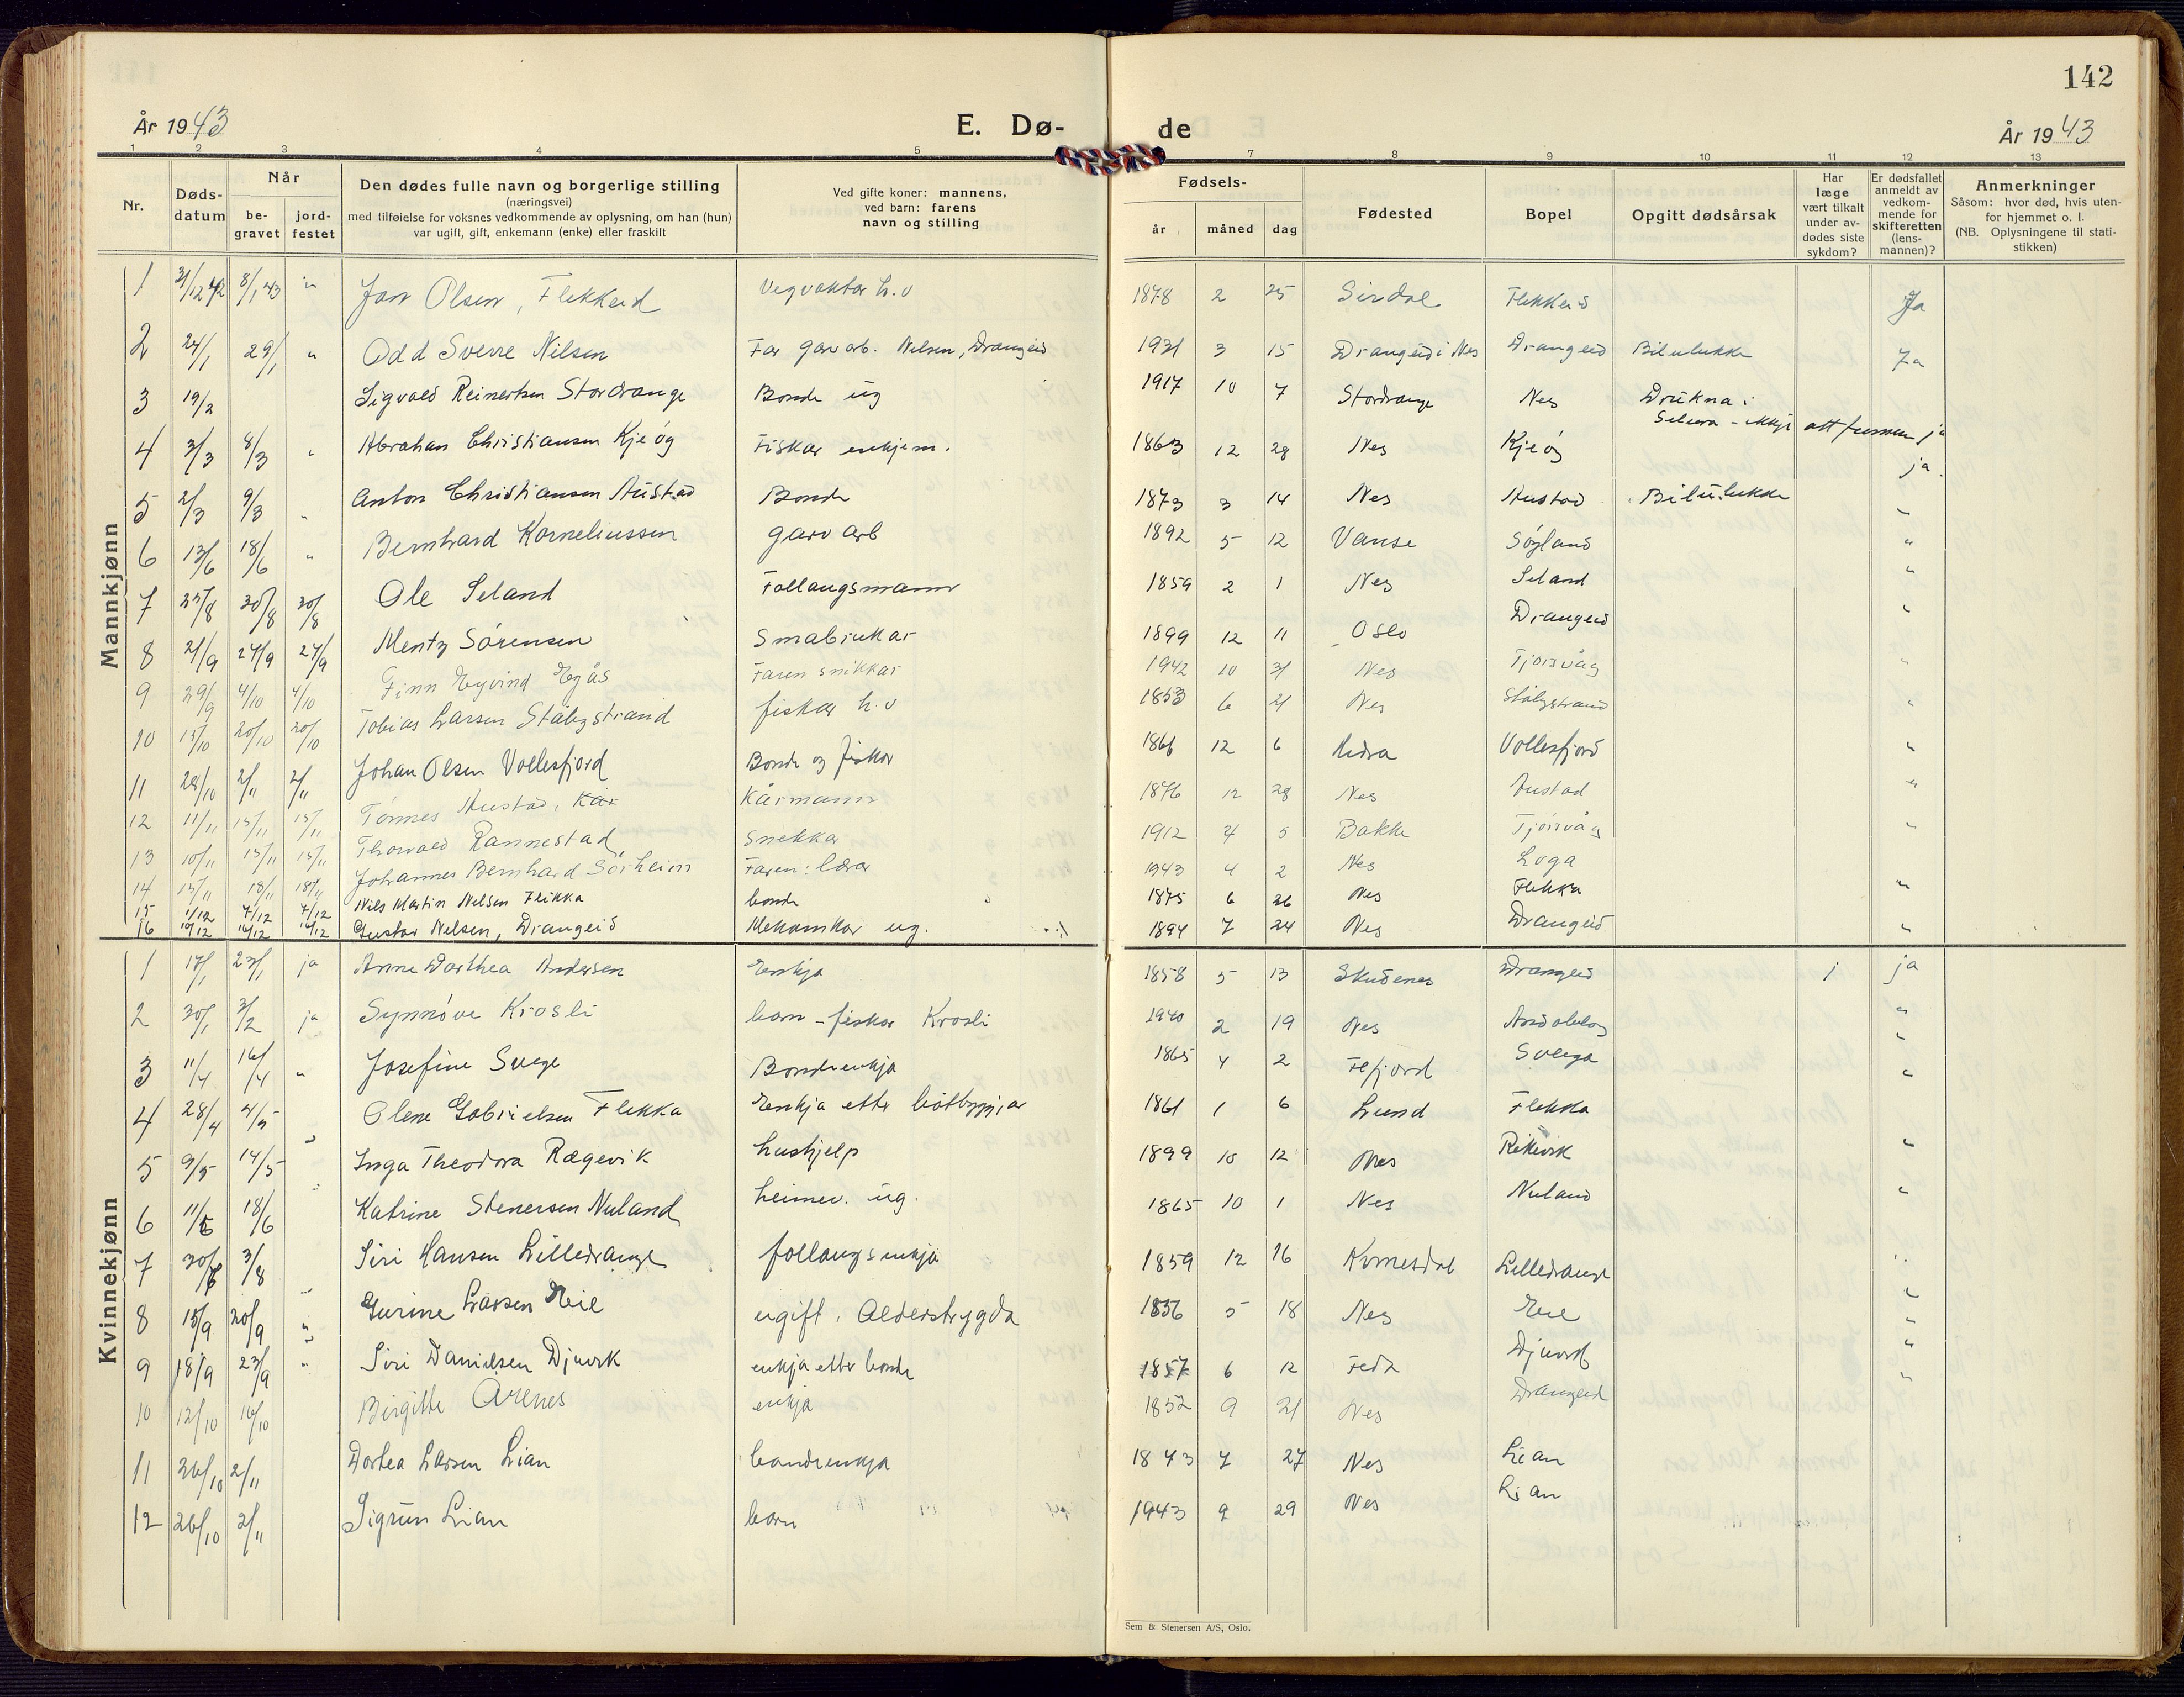 142
År 1943 E. Dø- de År 1943
1 2 3 4 5 7 8 9 10 11 12 13
Nr.
Døds-
datum
Når
be-
gravet
jord-
festet
Den dødes fulle navn og borgerlige stilling
(næringsvei)
med tilføielse for voksnes vedkommende av oplysning, om han (hun)
var ugift, gift, enkemann (enke) eller fraskilt
Ved gifte koner: mannens,
ved barn: farens
navn og stilling
Fødsels-
år måned dag
Fødested
Bopel
Opgitt dødsårsak
Har
læge
vært tilkalt
under av-
dødes siste
sykdom?
Er dødsfallet
anmeldt av
vedkom-
mende for
skifteretten
(lens-
mannen)?
Anmerkninger
Såsom: hvor død, hvis uten-
for hjemmet o. l.
(NB. Oplysningene til stati-
stikken)
Mannkjønn
1 31/12 42 8/1 43 " Jan Olsen, Flikkeid Vegvaktar h.v 1878 2 25 Sirdal Flikkeid Ja
2 24/1 29/1 " Odd Sverre Nilsen Far garvarb. Nilsen, Drangeid 1931 3 15 Drangeid i Nes Drangeid Bilulukke Ja
3 19/2 Sigvald Reinertsen Stordrange Bonde ug 1917 10 7 Stordrange Nes Drukna i
Selura - ikkje att funnen ja
4 3/3 8/3 " Abrahan Christiansen Kjeøy Fiskar enkjem. 1863 12 28 Nes Kjeøy ja
5 2/3 9/3 " Anton Christiansen Austad Bonde 1873 3 14 Nes Austad Bilulukke "
6 13/6 18/6 " Bernhard Korneliussen garv arb 1892 5 12 Vanse Søyland "
7 25/8 30/8 30/8 Ole Seland Follaugsmann 1859 2 1 Nes Seland "
8 21/9 27/9 27/9 Mentz Sørensen Småbrukar 1899 12 11 Oslo Drangeid "
9 29/9 4/10 4/10 Finn Eyvind Egås Faren snikkar 1942 10 31 Nes Tjørsvåg "
10 15/10 20/10 20/10 Tobias Larsen Stålegstrand fiskar h.v 1853 6 21 Nes Stålegstrand "
11 28/10 2/11 2/11 Johan Olsen Vollesfjord Bonde og fiskar 1866 12 6 Hidra Vollesfjord "
12 11/11 15/11 15/11 Tønnes Austad, Kår Kårmann 1876 12 28 Nes Austad "
13 10/11 15/11 15/11 Thorvald Rannestad, Snekkar 1912 4 5 Bakke Tjørsvåg "
14 15/11 18/11 18/11 Johannes Bernhard Sørheim Faren: lærar 1943 4 2 Nes Loga
15 1/12 7/12 7/12 Nils Martin Nilsen Flikka bonde 1875 6 26 Nes Flikka "
16 10/12 16/12 16/12 Gustav Nelsen, Drangeid Mekanikar ug. 1894 7 24 Nes Drangeid "
Kvinnekjønn
1 17/1 23/1 ja Anne Dorthea Andersen Enkja 1858 5 13 Skudenes Drangeid 1 ja
2 30/1 3/2 ja Synnøve Krosli barn - fiskar Krosli 1940 2 19 Nes "
3 11/4 16/4 " Josefine Svege Bondeenkja 1865 4 2 Fefjord Sveiga "
4 28/4 4/5 " Olene Gabrielsen Flikka Enkja etter båtbyggjar 1861 1 6 Lund Flikka "
5 9/5 14/5 " Inga Theodora Rægevik hushjelp 1899 10 12 Nes Rekevik "
6 11/6 18/6 Katrine Stenersen Nuland heimev. ug. 1865 10 1 Nes Nuland "
7 30/7 3/8 " Siri Hansen Lilledrange follaugsenkja 1859 12 16 Kvinesdal Lilledrange "
8 15/9 20/9 " Gurine Larsen Eeie ugift, Alderstrygda 1856 5 18 Nes Eeie "
9 18/9 23/9 " Siri Danielsen Djuvik enkja etter bonde 1857 6 12 Feda Djuvik "
10 12/10 16/10 Birgitte Årenes enkja 1852 9 21 Nes Drangeid "
11 26/10 2/11 Dortea Larsen Lian bondeenkja 1843 7 27 Nes Lian
12 26/10 2/11 Sigrun Lian barn 1943 9 29 Nes Lian
Sem & Stenersen A/S, Oslo.